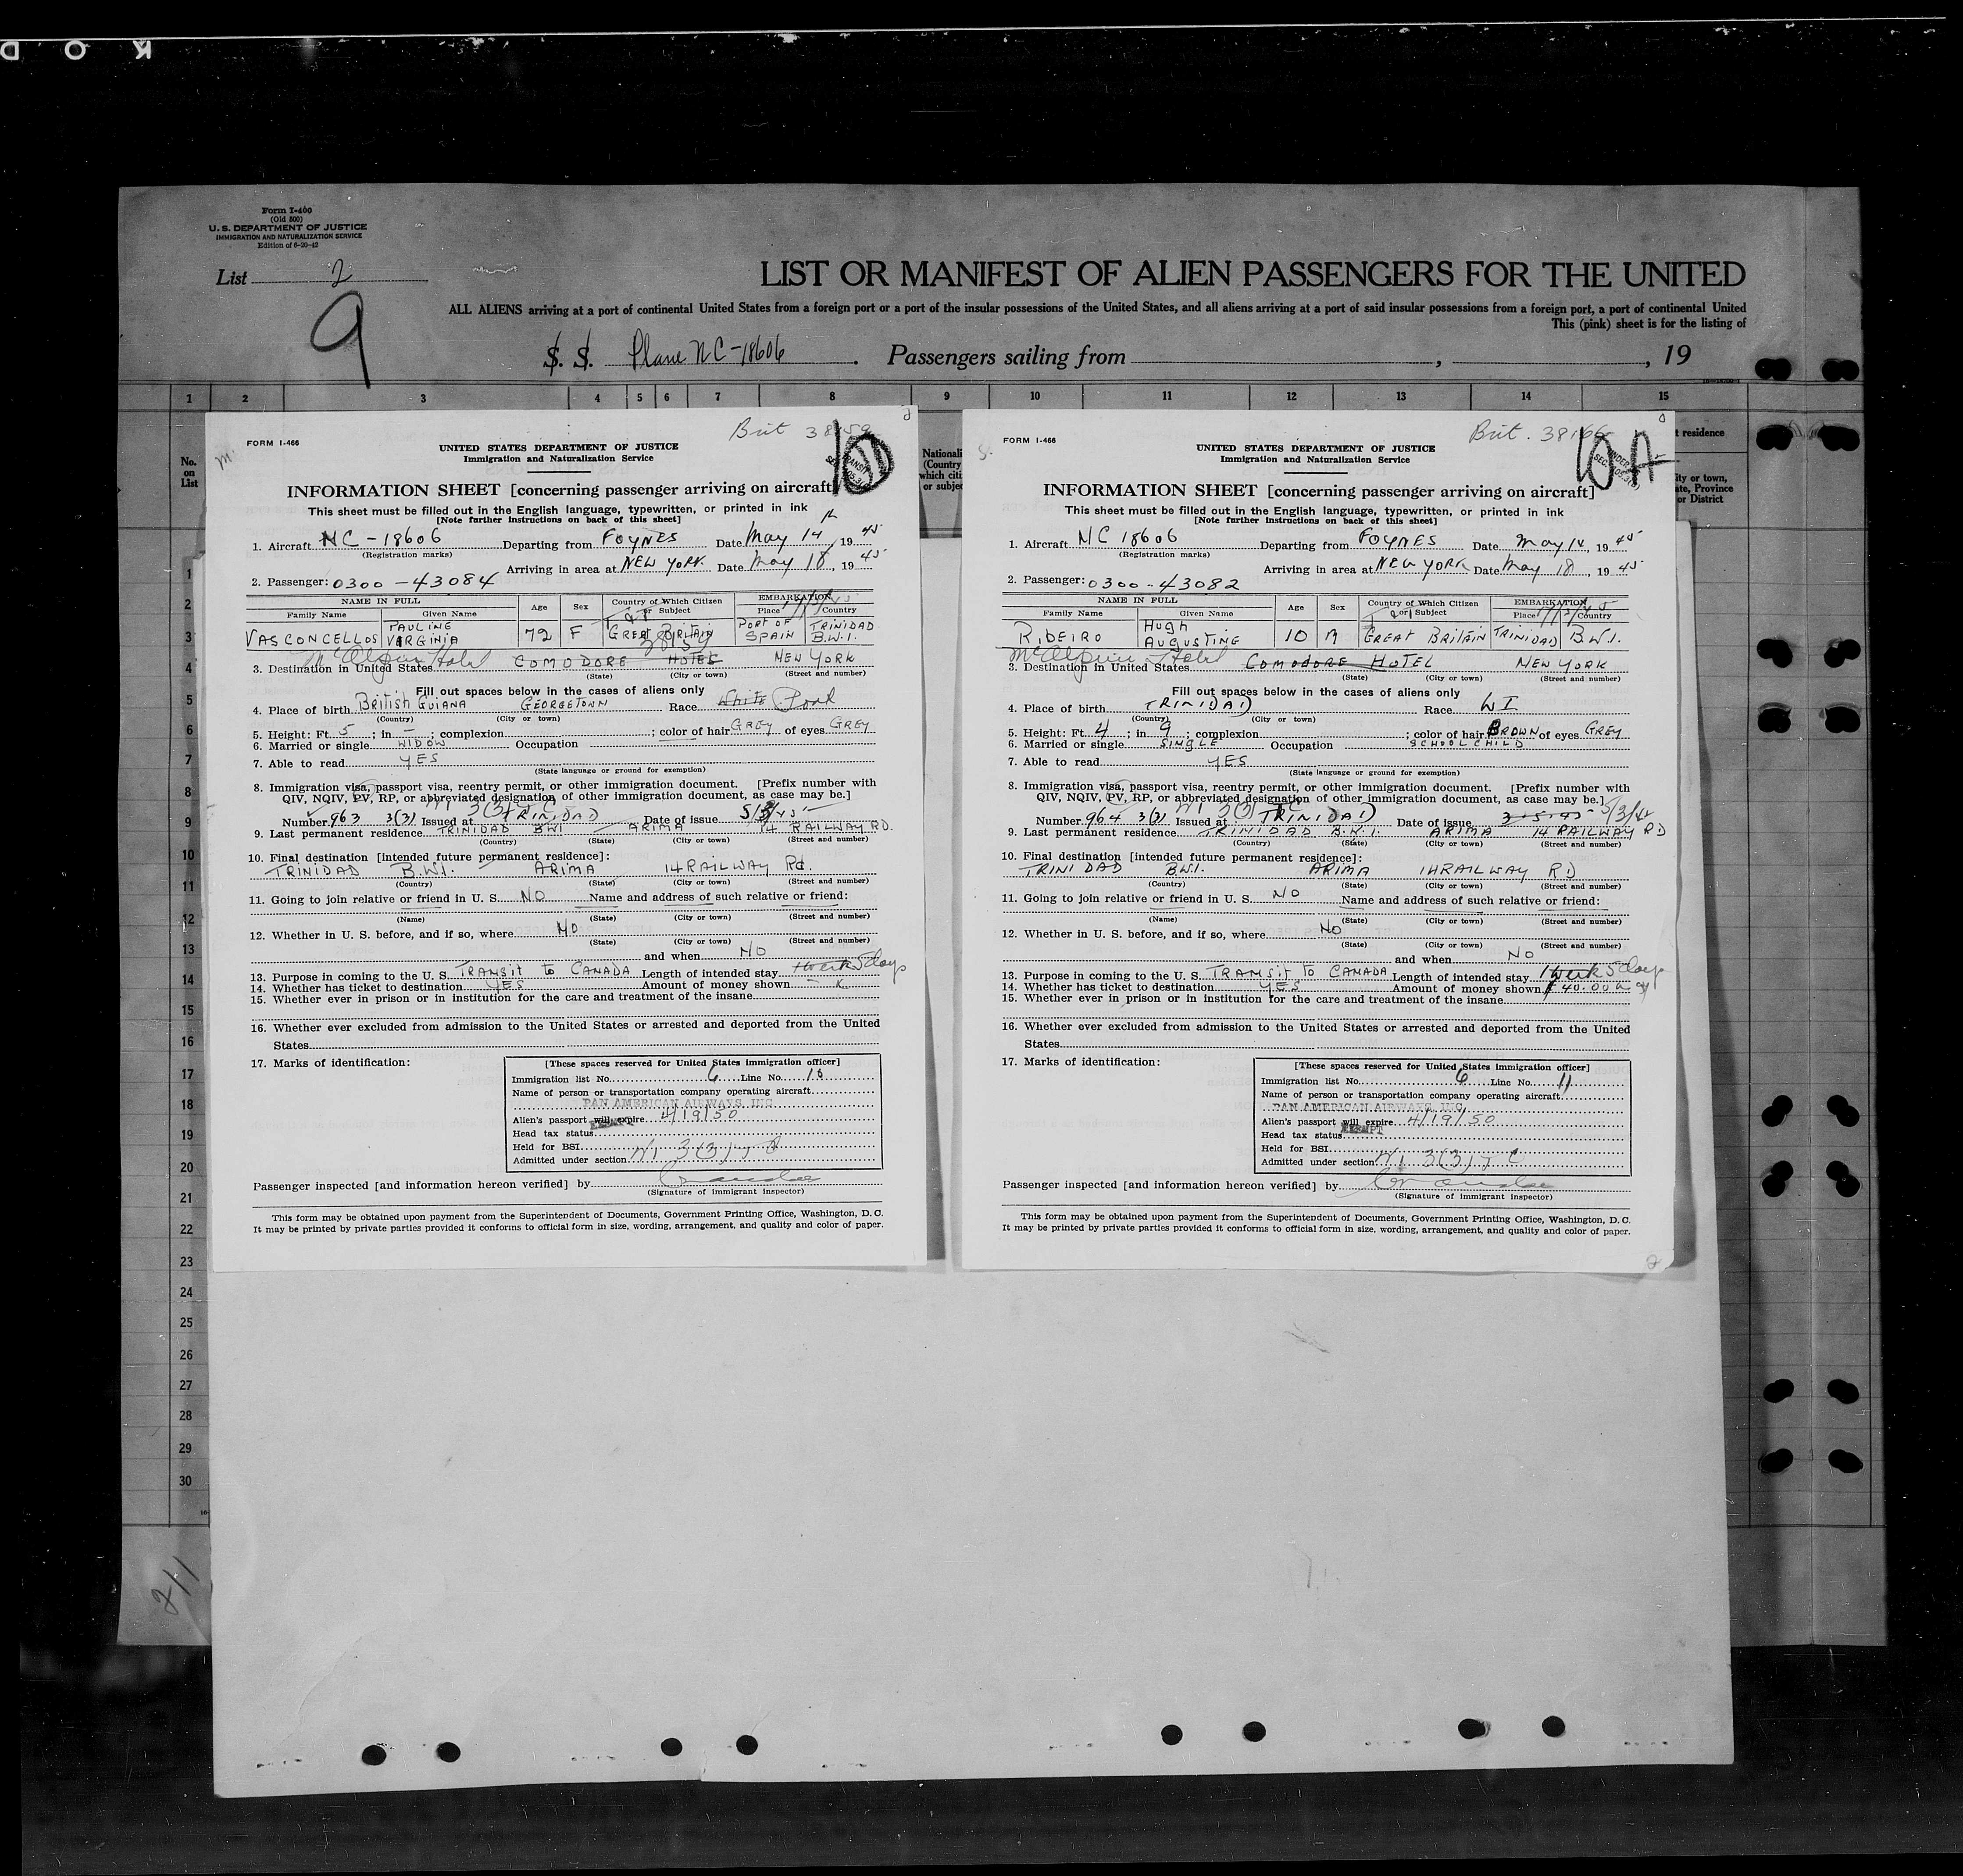 KOD
Form I-400
(Old 500)
U. S. DEPARTMENT OF JUSTICE
IMMIGRATION AND NATURALIZATION SERVICE
Edition of 6-20-42
List 2
9
LIST OR MANIFEST OF ALIEN PASSENGERS FOR THE UNITED
ALL ALIENS arriving at a port of continental United States from a foreign port or a port of the insular possessions of the United States, and all aliens arriving at a port of said insular possessions from a foreign port, a port of continental United
This (pink) sheet is for the listing of
S. S. Plane NC-18606. Passengers sailing from , , 19
1 2 3 4 5 6 7 8 9 10 11 12 13 14 15
No. on List
Nationali
(Country
which citi
or subjec
t residence
ity or town,
ate, Province
or District
1
2
3
4
5
6
7
8
9
10
11
12
13
14
15
16
17
18
19
20
21
22
23
24
25
26
27
28
29
30
211
FORM I-466
Brit
10
UNITED STATES DEPARTMENT OF JUSTICE
Immigration and Naturalization Service
INFORMATION SHEET [concerning passenger arriving on aircraft]
This sheet must be filled out in the English language, typewritten, or printed in ink
[Note further instructions on back of this sheet]
1. Aircraft NC-18606 Departing from FOYNES Date May 14th, 1945
(Registration marks)
Arriving in area at NEW YORK. Date May 18, 1945
2. Passenger: 0300-43084
NAME IN FULL Age Sex Country of Which Citizen or Subject EMBARKATION
Family Name Given Name Place Country
VASCONCELLOS PAULINE VIRGINIA 72 F GREAT BRITAIN PORT OF SPAIN TRINIDAD B.W.I.
McAlpin Hotel
3. Destination in United States COMODORE HOTEL NEW YORK
(State) (City or town) (Street and number)
Fill out spaces below in the cases of aliens only
4. Place of birth British GUIANA GEORGETOWN Race White Port
(Country) (City or town)
5. Height: Ft. 5; in –; complexion ; color of hair GREY of eyes GREY
6. Married or single WIDOW Occupation
7. Able to read YES
(State language or ground for exemption)
8. Immigration visa, passport visa, reentry permit, or other immigration document. [Prefix number with
QIV, NQIV, PV, RP, or abbreviated designation of other immigration document, as case may be.]
Number 963 3(3) Issued at TRINIDAD Date of issue 5/3/45
9. Last permanent residence TRINIDAD BWI ARIMA 14 RAILWAY RD.
(Country) (State) (City or town) (Street and number)
10. Final destination [intended future permanent residence]:
TRINIDAD B.W.I. ARIMA 14 RAILWAY Rd.
(Country) (State) (City or town) (Street and number)
11. Going to join relative or friend in U. S. NO Name and address of such relative or friend:
(Name) (State) (City or town) (Street and number)
12. Whether in U. S. before, and if so, where NO
(State) (City or town) (Street and number)
and when NO
13. Purpose in coming to the U. S. TRANSIT to CANADA Length of intended stay 1 week 5 days
14. Whether has ticket to destination YES Amount of money shown
15. Whether ever in prison or in institution for the care and treatment of the insane
16. Whether ever excluded from admission to the United States or arrested and deported from the United
States
17. Marks of identification:
[These spaces reserved for United States immigration officer]
Immigration list No. 6 Line No. 10
Name of person or transportation company operating aircraft
PAN AMERICAN AIRWAYS, INC.
Alien's passport will expire 4/19/50
Head tax status
Held for BSI
Admitted under section 3(3)
Passenger inspected [and information hereon verified] by
(Signature of immigrant inspector)
This form may be obtained upon payment from the Superintendent of Documents, Government Printing Office, Washington, D. C.
It may be printed by private parties provided it conforms to official form in size, wording, arrangement, and quality and color of paper.
FORM I-466
Brit. 38166
10 A
UNITED STATES DEPARTMENT OF JUSTICE
Immigration and Naturalization Service
INFORMATION SHEET [concerning passenger arriving on aircraft]
This sheet must be filled out in the English language, typewritten, or printed in ink
[Note further instructions on back of this sheet]
1. Aircraft NC 18606 Departing from FOYNES Date May 14, 1945
(Registration marks)
Arriving in area at NEW YORK Date May 18, 1945
2. Passenger: 0300-43082
NAME IN FULL Age Sex Country of Which Citizen or Subject EMBARKATION
Family Name Given Name Place Country
RIBEIRO Hugh AUGUSTINE 10 M GREAT BRITAIN TRINIDAD B.W.I.
McAlpin Hotel
3. Destination in United States COMODORE HOTEL NEW YORK
(State) (City or town) (Street and number)
Fill out spaces below in the cases of aliens only
4. Place of birth TRINIDAD Race WI
(Country) (City or town)
5. Height: Ft. 4; in 9; complexion ; color of hair BROWN of eyes GREY
6. Married or single SINGLE Occupation SCHOOL CHILD
7. Able to read YES
(State language or ground for exemption)
8. Immigration visa, passport visa, reentry permit, or other immigration document. [Prefix number with
QIV, NQIV, PV, RP, or abbreviated designation of other immigration document, as case may be.]
Number 964 3(3) Issued at TRINIDAD Date of issue 3-5-45
9. Last permanent residence TRINIDAD B.W.I. ARIMA 14 RAILWAY RD
(Country) (State) (City or town) (Street and number)
10. Final destination [intended future permanent residence]:
TRINIDAD B.W.I. ARIMA 14 RAILWAY RD
(Country) (State) (City or town) (Street and number)
11. Going to join relative or friend in U. S. NO Name and address of such relative or friend:
(Name) (State) (City or town) (Street and number)
12. Whether in U. S. before, and if so, where NO
(State) (City or town) (Street and number)
and when NO
13. Purpose in coming to the U. S. TRANSIT TO CANADA Length of intended stay 1 week 5 days
14. Whether has ticket to destination YES Amount of money shown $ 40.00
15. Whether ever in prison or in institution for the care and treatment of the insane
16. Whether ever excluded from admission to the United States or arrested and deported from the United
States
17. Marks of identification:
[These spaces reserved for United States immigration officer]
Immigration list No. 6 Line No. 11
Name of person or transportation company operating aircraft
PAN AMERICAN AIRWAYS, INC.
Alien's passport will expire 4/19/50
Head tax status EXEMPT
Held for BSI
Admitted under section 3(3)
Passenger inspected [and information hereon verified] by
(Signature of immigrant inspector)
This form may be obtained upon payment from the Superintendent of Documents, Government Printing Office, Washington, D. C.
It may be printed by private parties provided it conforms to official form in size, wording, arrangement, and quality and color of paper.